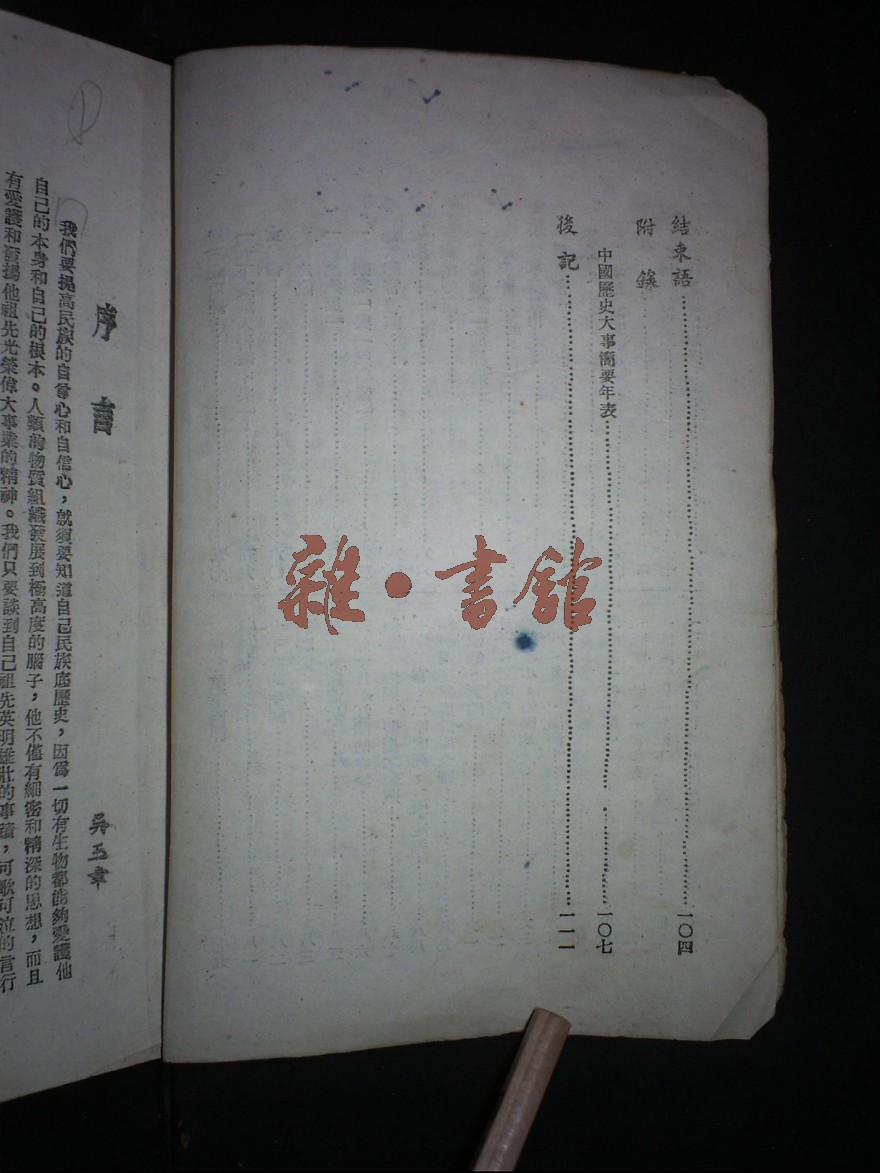 結束語……一〇四
附錄
中國歷史大事簡要年表……一〇七
後記……一一一
雜·書舘
序言
吳玉章
我們要提高民族的自尊心和自信心，就須要知道自己民族底歷史，因爲一切有生物都能夠愛護他
自己的本身和自己的根本。人類的物質組織發展到極高度的腦子，他不僅有細密和精深的思想，而且
有愛護和發揚他祖先光榮偉大事業的精神。我們只要談到自己祖先英明雄壯的事蹟，可歌可泣的言行